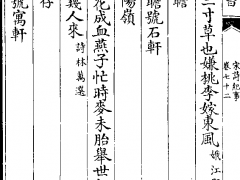 宋詩紀事
卷七十二
二寸草也嫌桃李嫁東風 娥江
瞻
瞻號石軒
陽嶺
花成血燕子忙時麥未胎舉世
幾人來 詩林萬選
存
號寓軒